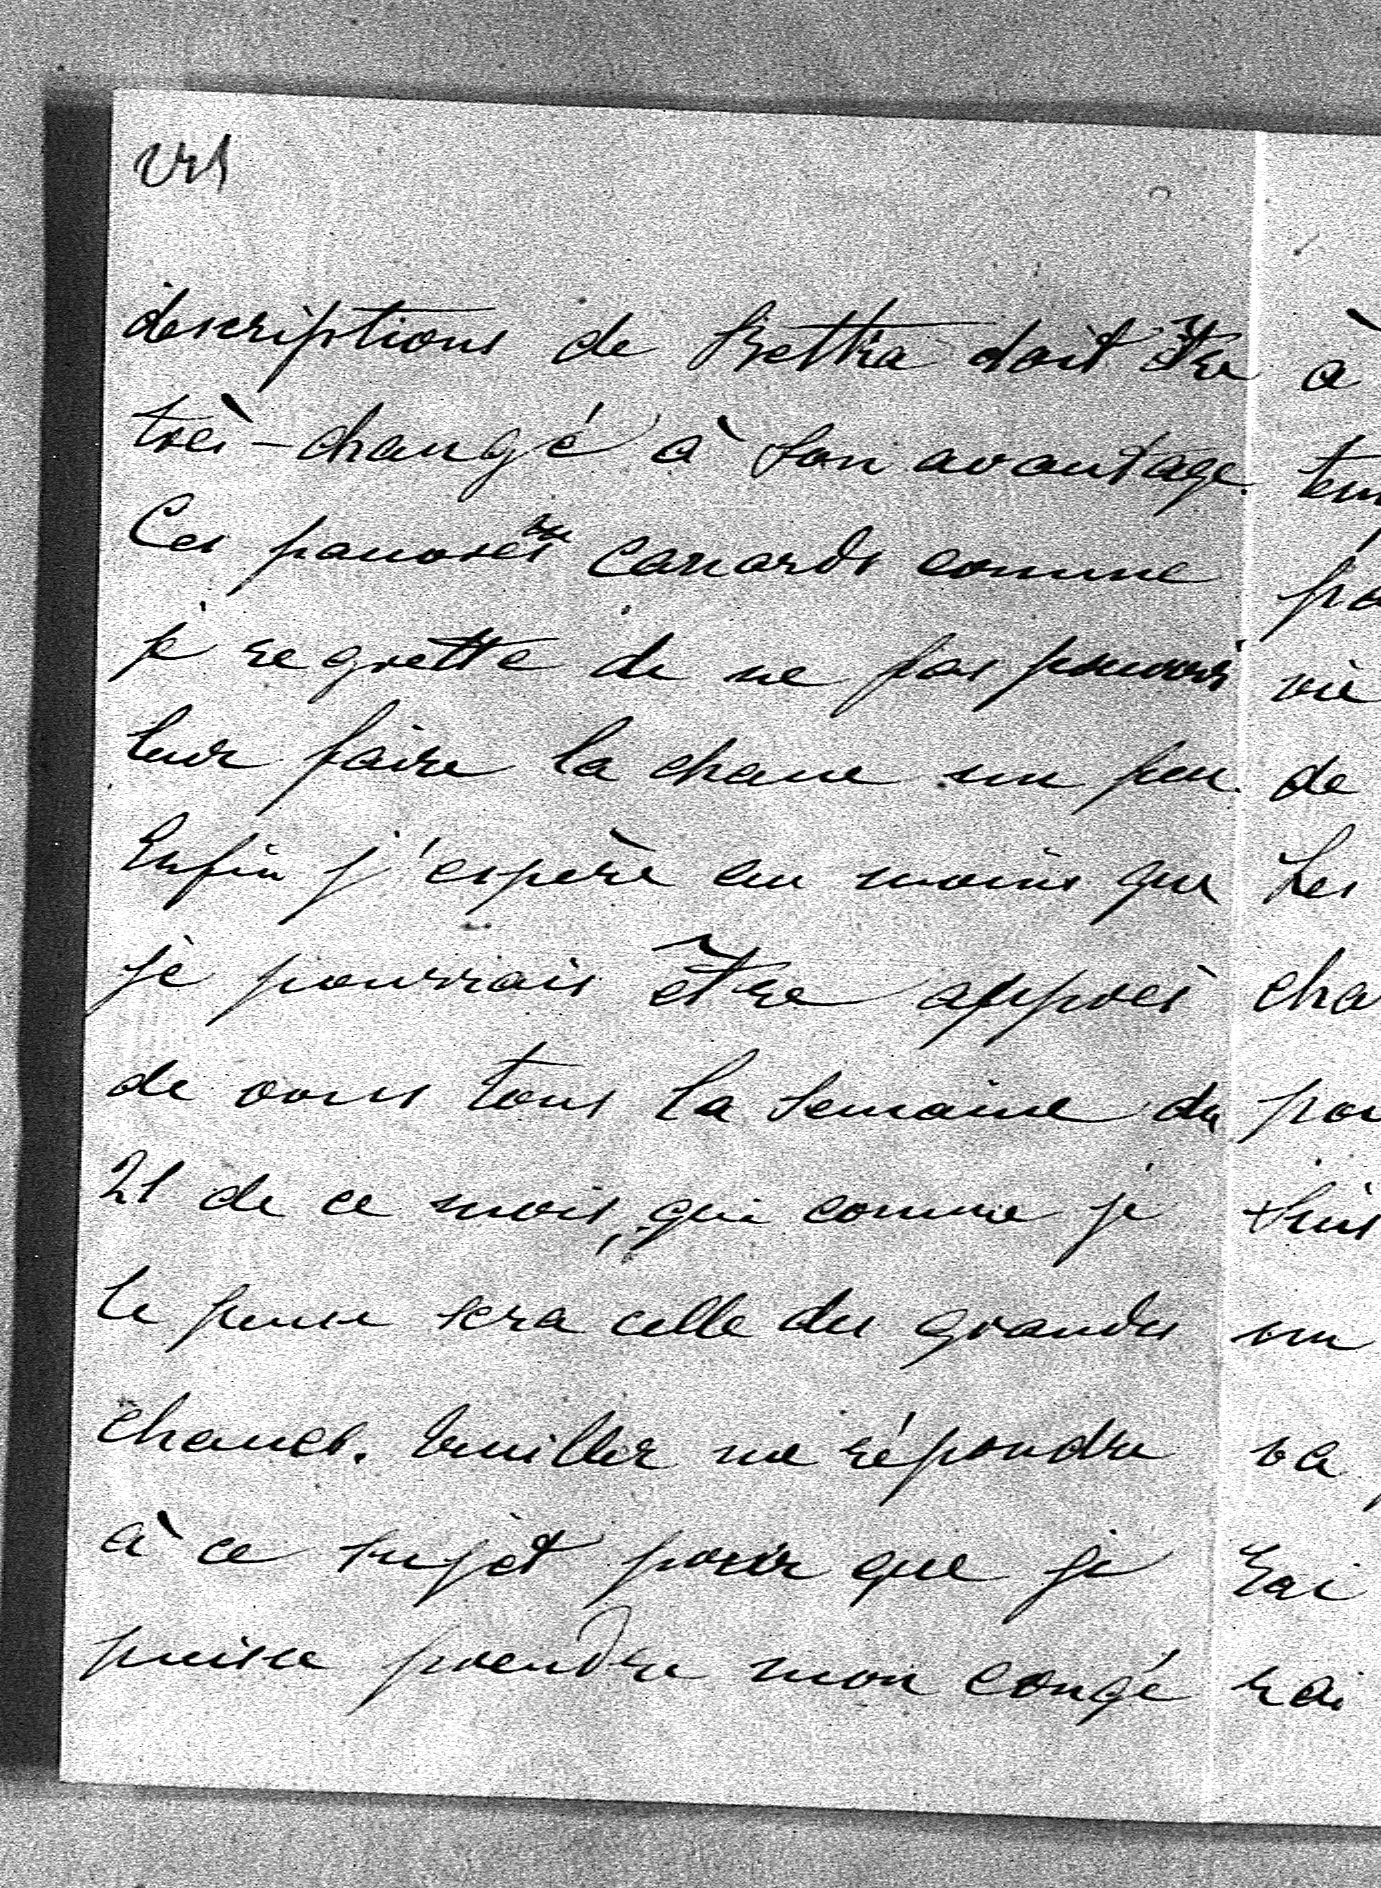 descriptions de Bettia doit être
très-changé à son avantage.
Ces pauvres canards comme
je regrette de ne pas pouvoir
leur faire la chasse un peu.
Enfin j'espère au moins que
je pourrais être apprès
de vous tous la semaine du
21 de ce mois, qui comme je
le pense sera celle des grandes
chasses. Veuillez me répondre
à ce sujet pour que je
puisse prendre mon congé
à
de
Les
cha